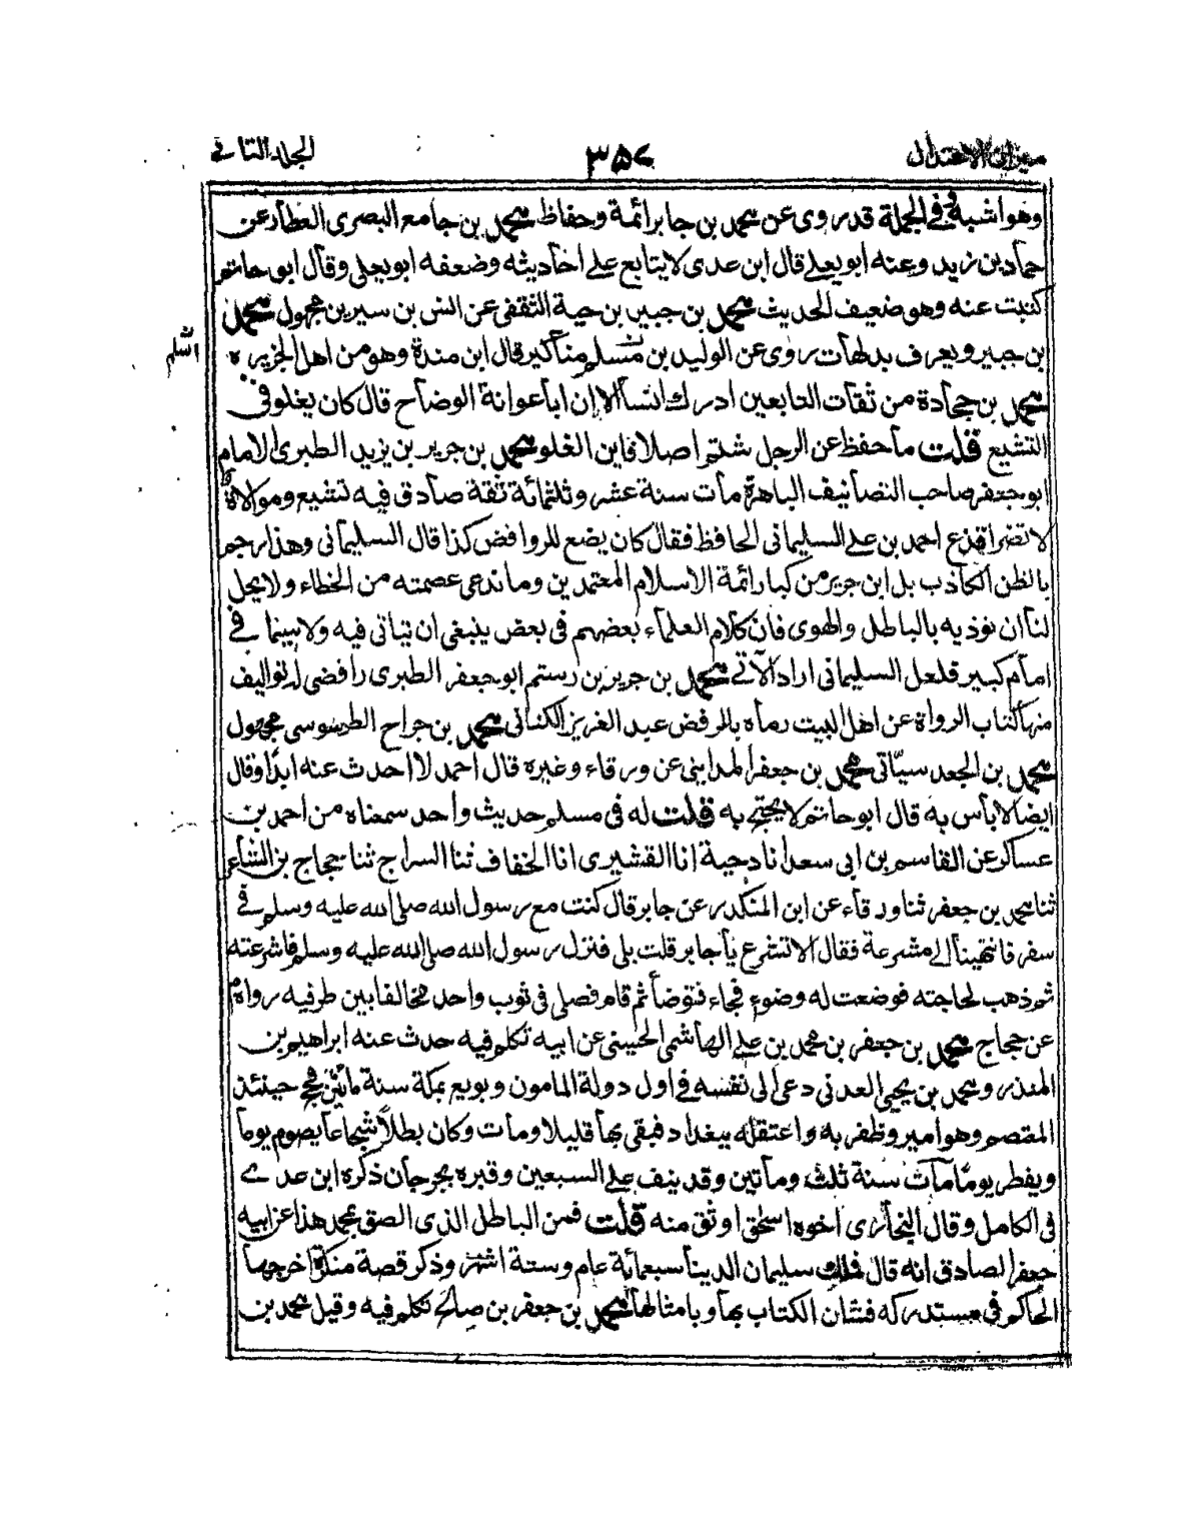 ميزان الاعتدال
٣٥٧
الجلد الثانى
وهو اشبه وفى الجملة قد روى عن محمد بن جابر ائمة وحفاظ محمد بن جامع البصرى العطار عن
حماد بن زيد وعنه ابو يعلى قال ابن عدى لا يتابع على احاديثه وضعفه ابو يعلى وقال ابو حاتم
كتبت عنه وهو ضعيف الحديث محمد بن جبير بن حية الثقفى عن انس بن سيرين مجهول محمد
بن جبير ويعرف روى عن الوليد بن مسلم مناكير قال ابن مندة وهو من اهل الجزيره
اسلم
محمد بن جحادة من ثقات التابعين ادرك انسا الا ان ابا عوانة الوضاح قال كان يغلو فى
التشيع قلت ما حفظ عن الرجل شتم اصلا فاين الغلو محمد بن جرير بن يزيد الطبرى الامام
ابو جعفر صاحب التصانيف الباهرة مات سنة عشر وثلثمائة ثقة صادق فيه تشيع وموالاة
لا تضر اقذع احمد بن على السليمانى الحافظ فقال كان يضع للروافض كذا قال السليمانى وهذا رجم
بالظن الكاذب بل ابن جرير من كبار ائمة الاسلام المعتمدين وما ندعى عصمته من الخطاء ولا يحل
لنا ان نوذيه بالباطل والهوى فان كلام العلماء بعضهم فى بعض ينبغى ان يتانى فيه ولا سيما فى
امام كبير فلعل السليمانى اراد الآتى محمد بن جرير بن رستم ابو جعفر الطبرى رافضى له تواليف
منها كتاب الرواة عن اهل البيت رماه بالرفض عبد العزيز الكتانى محمد بن جراح الطرسوسى مجهول
محمد بن الجعد سيأتى محمد بن جعفر المداينى عن ورقاء وغيره قال احمد لا احدث عنه ابدا وقال
ايضا لا بأس به قال ابو حاتم لا يحتج به قلت له فى مسلم حديث واحد سمعناه من احمد بن
عساكر عن القاسم بن ابى سعد انا دحية انا القشيرى انا الخفاف ثنا السراج ثنا حجاج بن الشاعر
ثنا محمد بن جعفر ثنا ورقاء عن ابن المنكدر عن جابر قال كنت مع رسول الله صلى الله عليه وسلم فى
سفر فانتهينا الى مشرعة فقال الا تشرع يا جابر قلت بلى فنزل رسول الله صلى الله عليه وسلم فاشرعته
ثم ذهب لحاجته فوضعت له وضوء فجاء فتوضأ ثم قام فصلى فى ثوب واحد مخالفا بين طرفيه رواه م
عن حجاج محمد بن جعفر بن محمد بن على الهاشمى الحسينى عن ابيه تكلم فيه حدث عنه ابراهيم بن
المنذر ومحمد بن يحيى العدنى دعى الى نفسه فى اول دولة المامون وبويع بمكة سنة مائتين فحج حينئذ
المعتصم وهو امير وظفر به واعتقله ببغداد فبقى بها قليلا ومات وكان بطلا شجاعا يصوم يوما
ويفطر يوما مات سنة ثلث ومأتين وقد ينف على السبعين وقبره بجرجان ذكره ابن عدى
فى الكامل وقال البخارى اخوه اسحق اوثق منه قلت فمن الباطل الذى الصق بمحمد هذا عن ابيه
جعفر الصادق انه قال فملك سليمان الدنيا سبعمائة عام وستة اشهر وذكر قصة منكرة اخرجها
الحاكم فى مستدركه فشان الكتاب بها وبامثالها محمد بن جعفر بن صالح تكلم فيه وقيل محمد بن